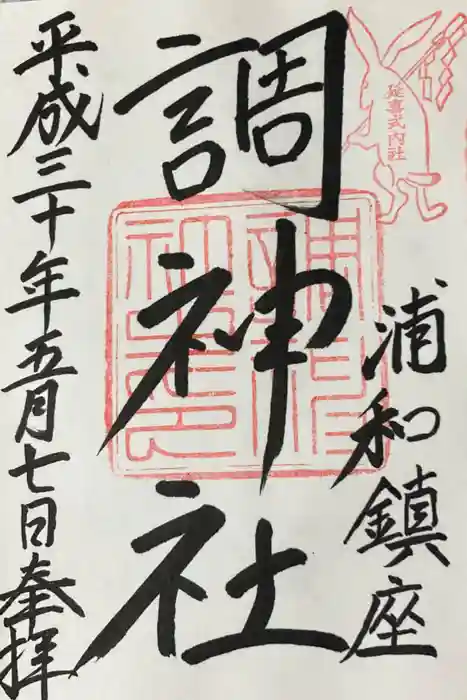 延喜式内社
浦和鎮座
調神社
平成三十年五月七日奉拝